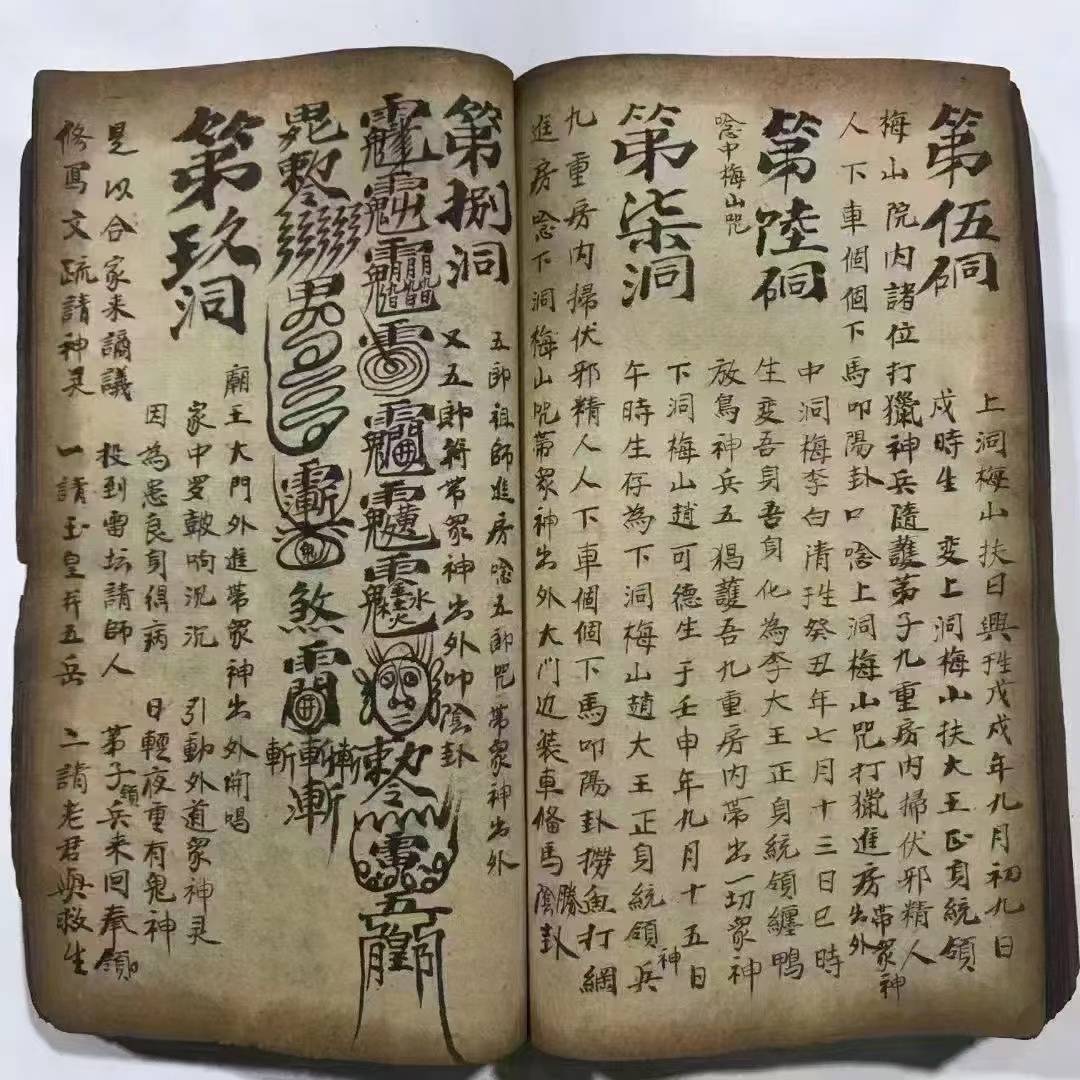 第伍硐
上洞梅山扶曰興甠戊戌年九月初九日
戌時生 变上洞梅山扶大王正身統領
梅山院内諸位打獵神兵隨護弟子九重房内掃伏邪精人
人下車個個下馬叩陽卦口唸上洞梅山咒打獵進房帶眾神出外
第陸硐
唸中梅山咒
中洞梅李白清甠癸丑年七月十三日巳時
生变吾身吾身化為李大王正身統領纏鴨
放鳥神兵五猖護吾九重房内帶出一切眾神
第柒洞
下洞梅山趙可德生于壬申年九月十五日
午時生存為下洞梅山趙大王正身統領神兵
九重房内掃伏邪精人人下車個個下馬叩陽卦撈魚打綱
進房唸下洞梅山咒帶眾神出外大门边裝車俻馬勝陰卦
第捌洞
五郎祖師進房唸五郎咒帶眾神出外
又五郎符帶眾神出外叩陰卦
勅
煞
斬
第玖洞
廟王大門外進帶眾神出外開唱
家中罗皷响沉沉 引動外道眾神灵
因為患良身得病 日輕夜重有鬼神
是以合家来謫議 投到雷坛請師人 弟子領兵来回奉領
俻寫文疏請神灵 一請玉皇并五岳 二請老君與救生